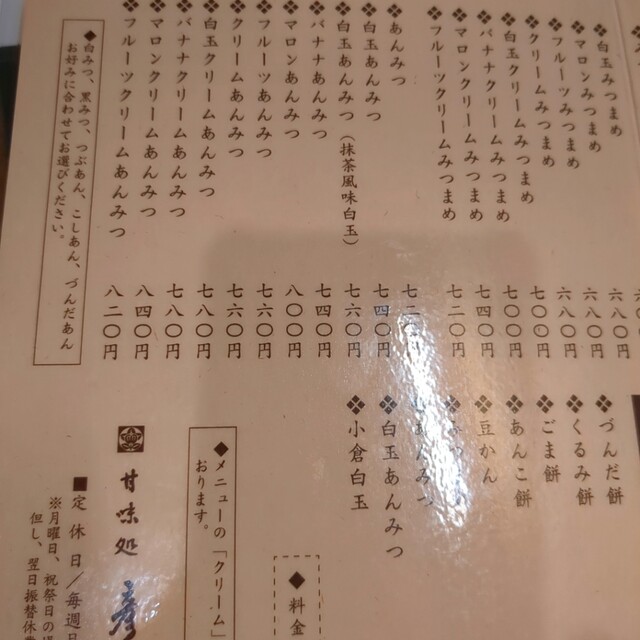 ❖白玉みつまめ
❖マロンみつまめ 六八〇円
❖フルーツみつまめ 六八〇円
❖クリームみつまめ 六八〇円
❖白玉クリームみつまめ 七〇〇円
❖バナナクリームみつまめ 七〇〇円
❖マロンクリームみつまめ 七四〇円
❖フルーツクリームみつまめ 七二〇円
❖あんみつ
❖白玉あんみつ 七四〇円
❖白玉あんみつ（抹茶風味白玉） 七六〇円
❖バナナあんみつ 七四〇円
❖マロンあんみつ 八〇〇円
❖フルーツあんみつ 七六〇円
❖クリームあんみつ 七六〇円
❖白玉クリームあんみつ 七八〇円
❖バナナクリームあんみつ 七八〇円
❖マロンクリームあんみつ 八四〇円
❖フルーツクリームあんみつ 八二〇円
◆白みつ、黒みつ、つぶあん、こしあん、づんだあん
お好みに合わせてお選びください。
❖づんだ餅
❖くるみ餅
❖ごま餅
❖あんこ餅
❖豆かん
❖白玉あんみつ
❖小倉白玉
◆料金
◆メニューの「クリーム」
おります。
甘味処 彦
■定休日／毎週
※月曜日、祝祭日の
但し、翌日振替休